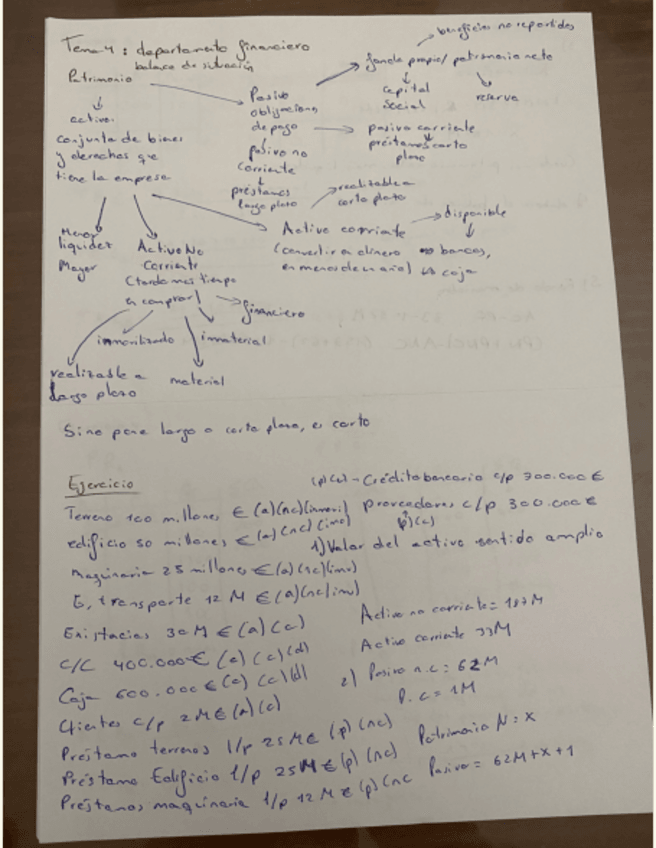 Tema 4: departamento financiero
balance de situación
Patrimonio
activo:
conjunto de bienes
y derechos que
tiene la empresa
Pasivo
obligaciones
de pago
pasivo no
corriente
préstamos
largo plazo
beneficios no repartidos
fondo propio/ patrimonio neto
capital
social
reserva
pasivo corriente
préstamos corto
plazo
realizable a
corto plazo
Activo corriente
(convertir a dinero
en menos de un año)
disponible
bancos,
caja
Menor
liquidez
Mayor
Activo No
Corriente
(tardamos tiempo
en comprar)
financiero
inmovilizado
inmaterial
realizable a
largo plazo
material
Si no pone largo o corto plazo, es corto
Ejercicio
(p)(c) - Crédito bancario c/p 700.000€
Terreno 100 millones € (a)(nc)(inmovi)
proveedores c/p 300.000€
(p)(c)
edificio 50 millones € (a)(nc)(imo)
1) Valor del activo sentido amplio
Maquinaria 25 millones € (a)(nc)(imo)
E, transporte 12 M € (a)(nc)(imo)
Activo no corriente = 187M
Existacias 30 M € (a)(c)
Activo corriente 33M
C/C 400.000€ (a)(c)(d)
2) Pasivo n.c: 62M
Caja 600.000€ (a)(c)(d)
P. c = 1M
Clientes c/p 2M€ (a)(c)
Préstamo terrenos l/p 25M€ (p)(nc)
Patrimonio N: x
Préstamo Edificio l/p 25M€ (p)(nc)
Pasivo = 62M+x+1
Préstamos maquinaria l/p 12M€ (p)(nc